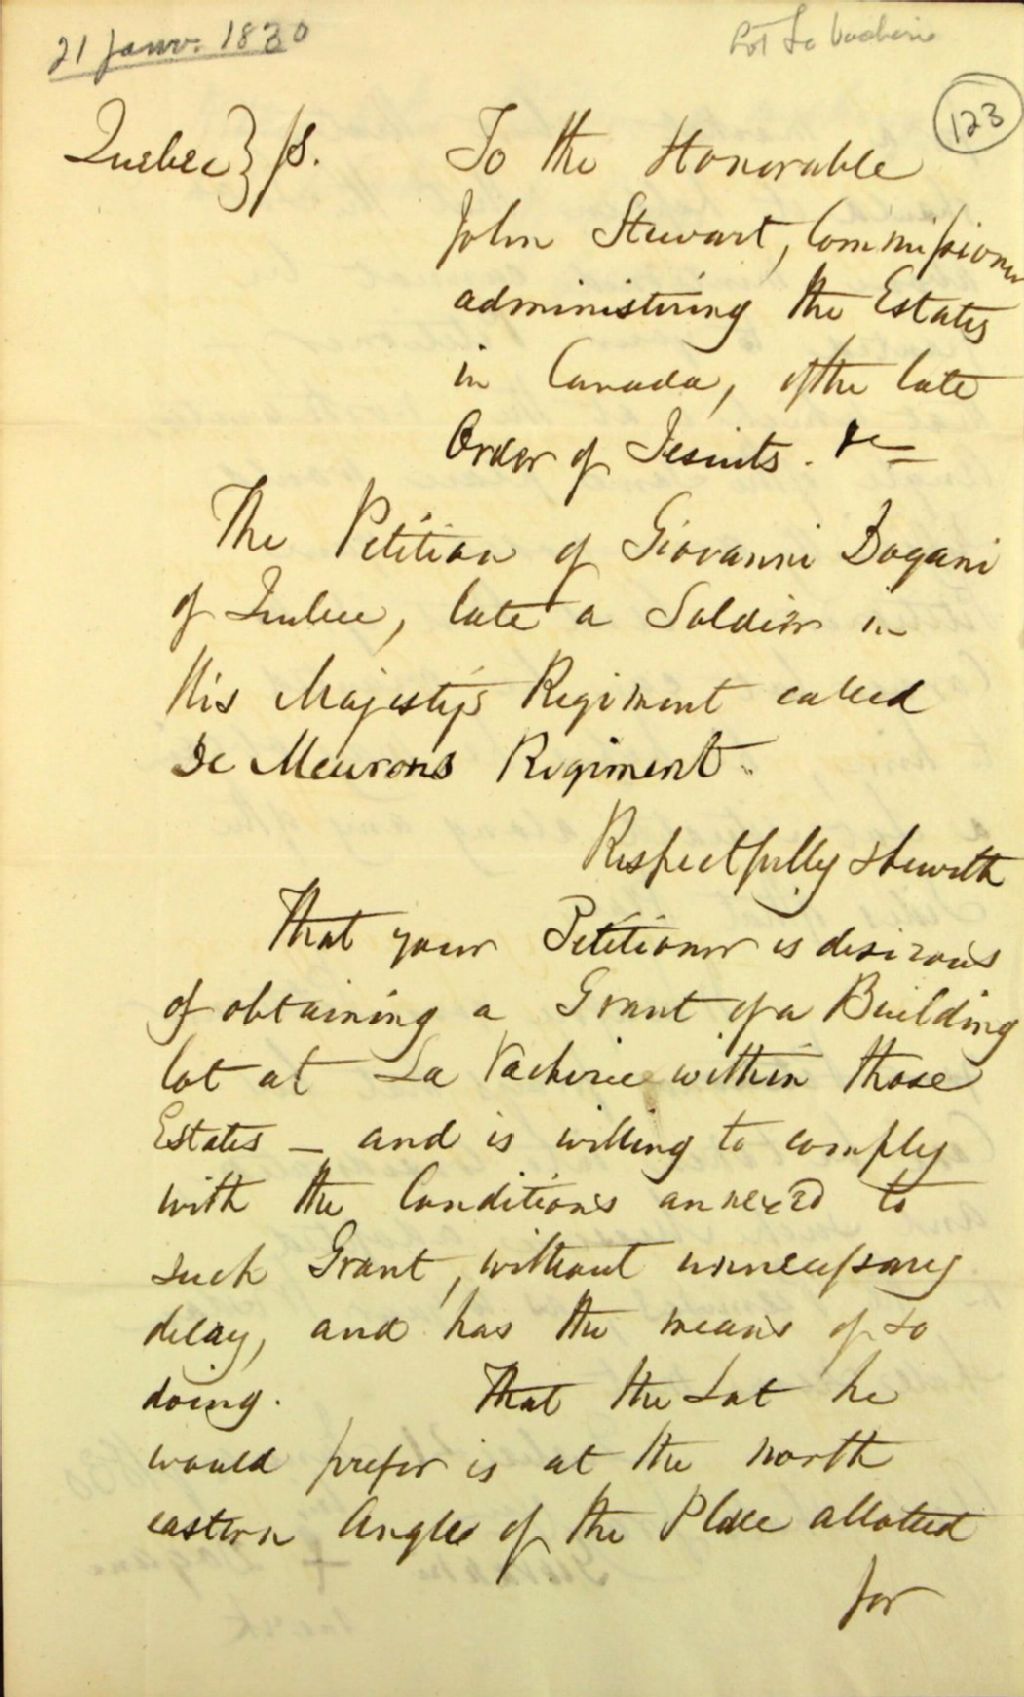 21 Janv. 1830
Lot La Vacherie
123
Quebec } ss.
To the Honorable
John Stewart, Commissioner
administering the Estates
in Canada, of the late
Order of Jesuits. &c
The Petition of Giovanni Dogani
of Quebec, late a Soldier in
His Majesty's Regiment called
De Meurons Regiment.
Respectfully sheweth
That your Petitioner is desirous
of obtaining a Grant of a Building
lot at La Vacherie within those
Estates – and is willing to comply
with the Conditions annexed to
such Grant, without unnecessary
delay, and has the means of so
doing. That the Lot he
would prefer is at the north
eastern Angle of the Place allotted
for